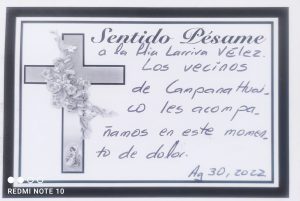 Sentido Pésame
a la Flia Larriva Vélez.
Los vecinos
de Campana Huai-
co les acompa-
ñamos en este momen-
to de dolor.
Ag 30, 2022
REDMI NOTE 10